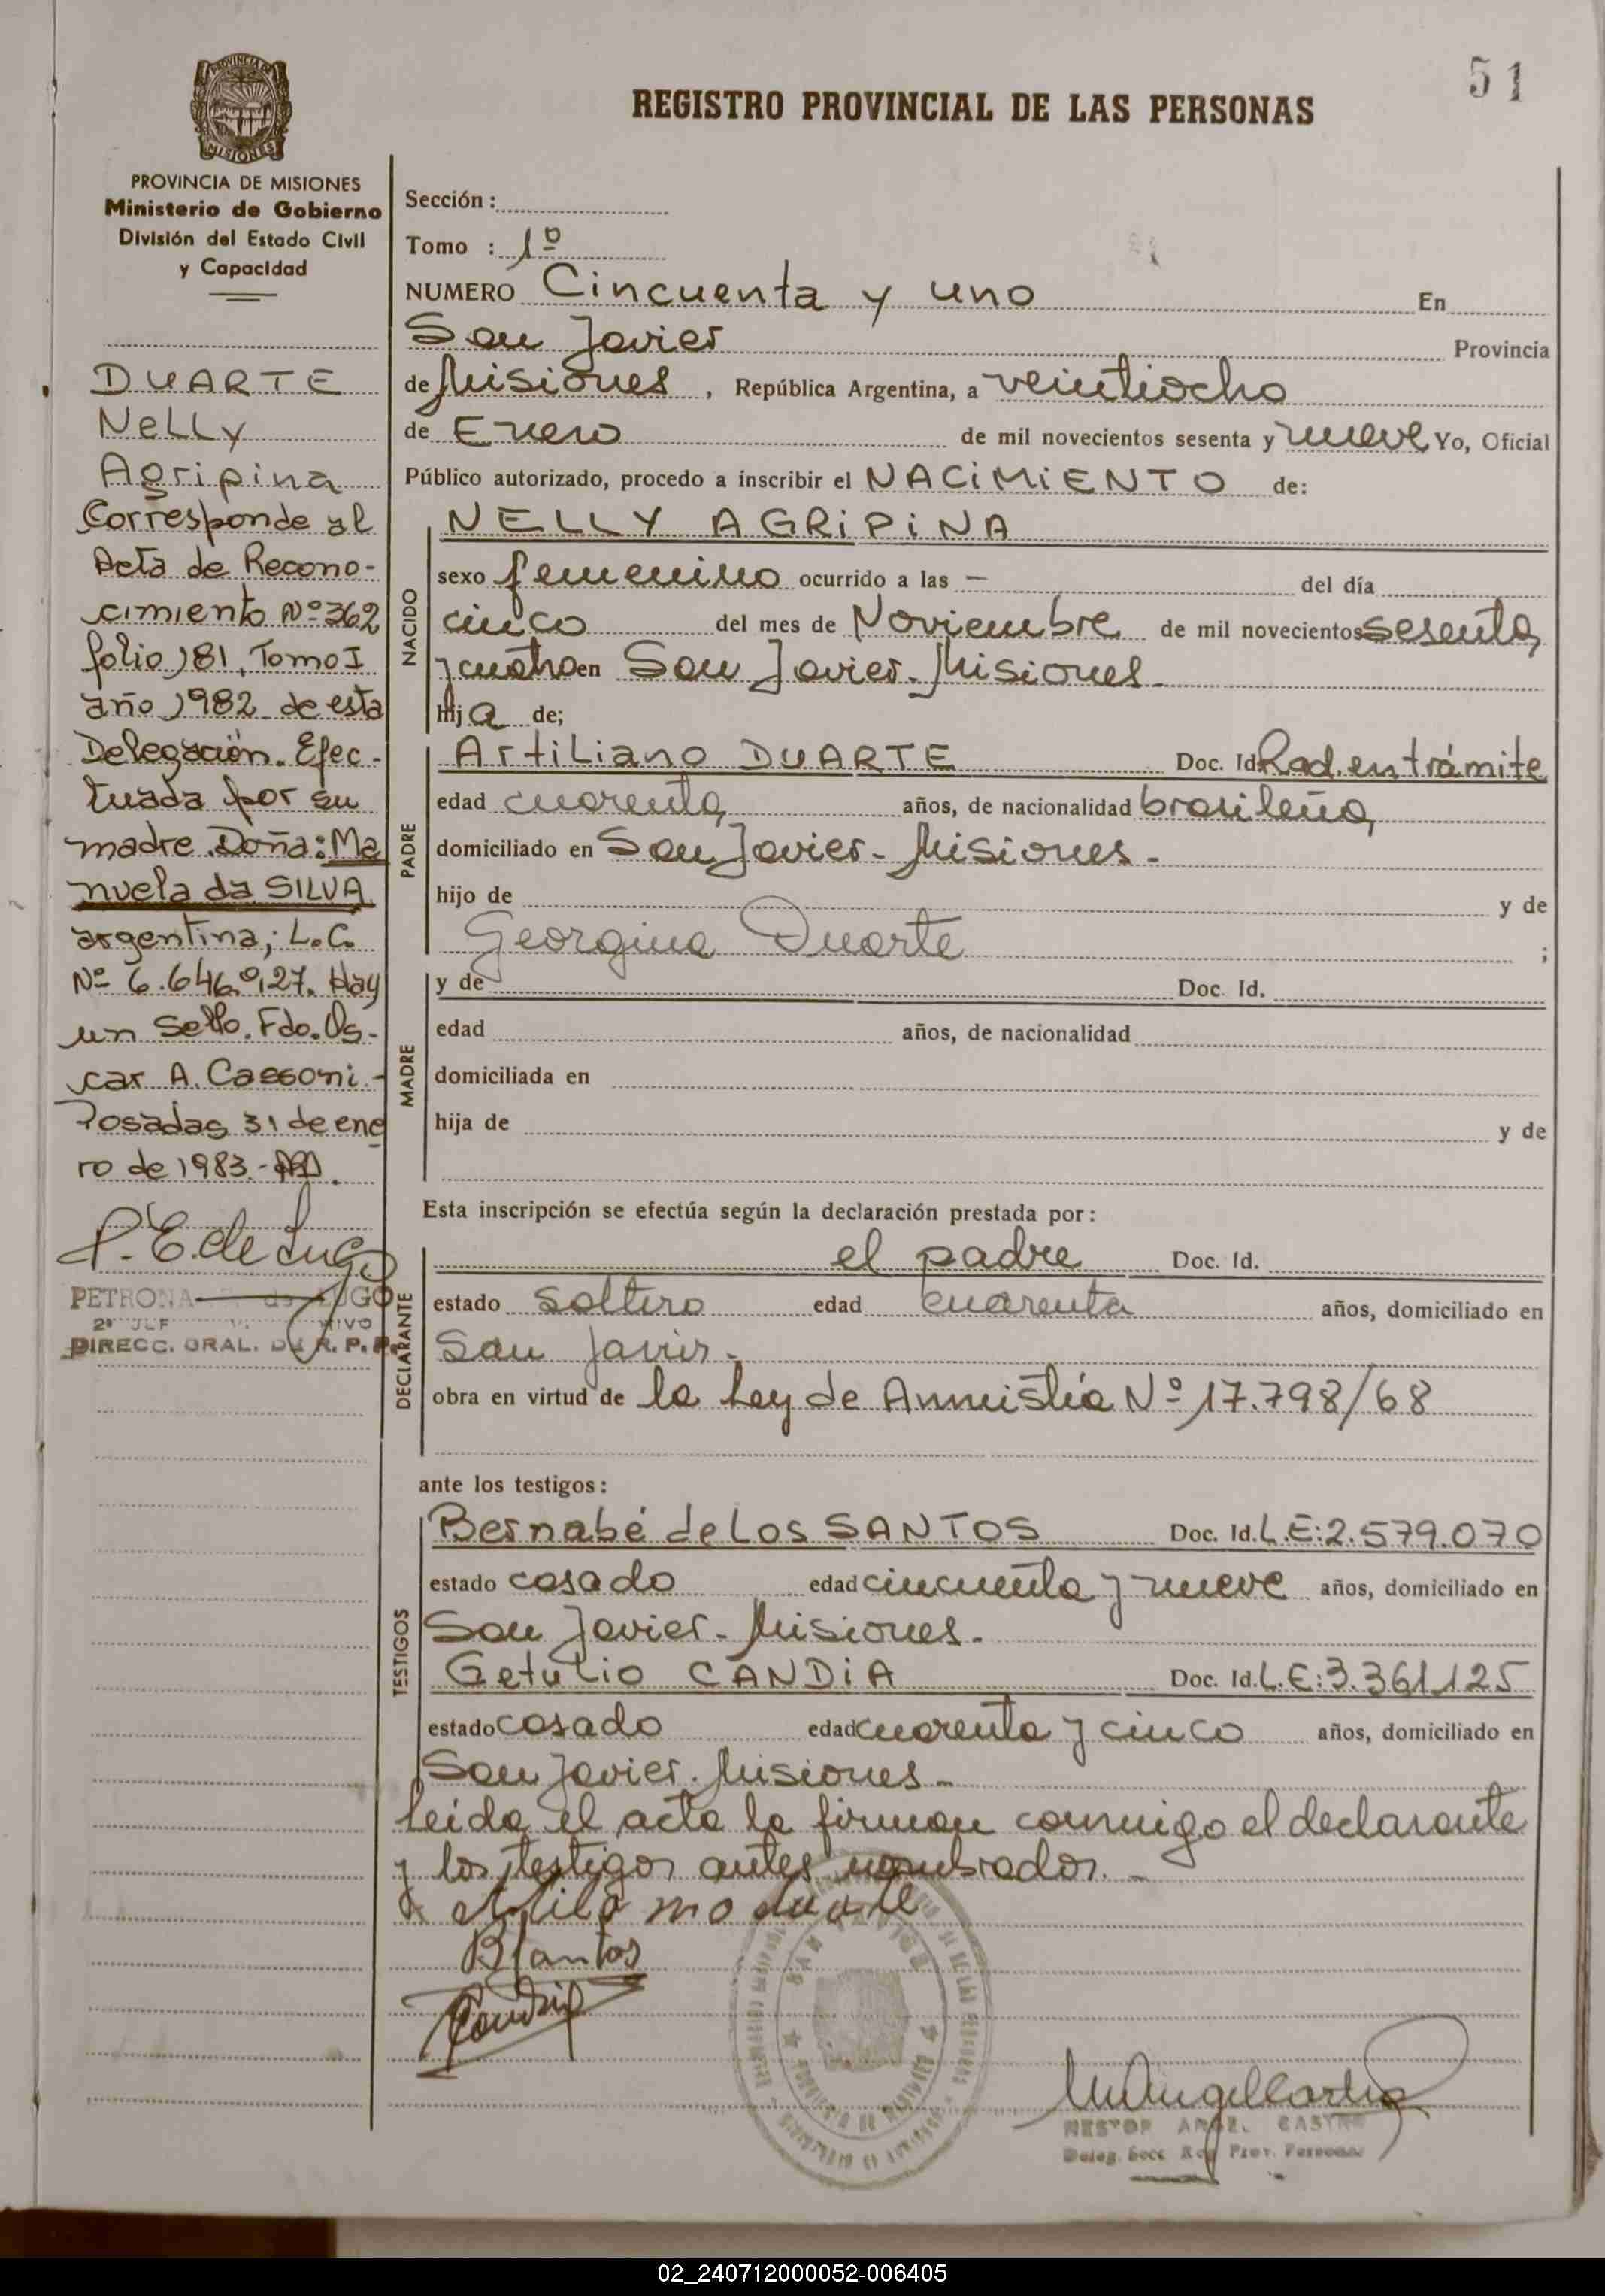 51
REGISTRO PROVINCIAL DE LAS PERSONAS
PROVINCIA DE MISIONES
Ministerio de Gobierno
División del Estado Civil
y Capacidad
DUARTE
NeLLy
Agripina
Corresponde al
Acta de Recono-
cimiento Nº 362
folio 181, Tomo I
año 1982 de esta
Delegación. Efec-
tuada por su
madre Doña: Ma
nuela da SILVA
argentina; L.C.
Nº 6.646.027. Hay
un sello. Fdo. Os-
car A. Cassoni.-
Posadas 31 de ene
ro de 1983.-
P. E. de Lugo
PETRONA de LUGO
DIRECC. GRAL. DE R. P. P.
Sección :
Tomo : 1º
NUMERO Cincuenta y uno En
San Javier Provincia
de Misiones , República Argentina, a veintiocho
de Enero de mil novecientos sesenta y nueve Yo, Oficial
Público autorizado, procedo a inscribir el NACiMiENTO de:
NACIDO
NELLY AGRiPiNA
sexo femenino ocurrido a las — del día
cinco del mes de Noviembre de mil novecientos sesenta
y cuatro en San Javier. Misiones
hija de;
PADRE
ArtiLiano DUARTE Doc. Id. Rad. en trámite
edad cuarenta años, de nacionalidad brasileña
domiciliado en San Javier - Misiones -
hijo de y de
Georgina Duarte ;
MADRE
y de Doc. Id.
edad años, de nacionalidad
domiciliada en
hija de y de
Esta inscripción se efectúa según la declaración prestada por :
DECLARANTE
el padre Doc. Id.
estado soltero edad cuarenta años, domiciliado en
San Javier -
obra en virtud de la Ley de Amnistía Nº 17.798/68
ante los testigos :
TESTIGOS
Bernabé de Los SANTOS Doc. Id. L.E:2.579.070
estado casado edad cincuenta y nueve años, domiciliado en
San Javier - Misiones -
GetuLio CANDiA Doc. Id. L.E:3.361.125
estado casado edad cuarenta y cinco años, domiciliado en
San Javier. Misiones -
leída el acta la firman conmigo el declarante
y los testigos antes nombrados. -
BSantos
Candia
SAN JAVIER
PROVINCIA DE MISIONES
NESTOR ANGEL CASTRO
Deleg. Secc. Reg. Prov. Personas
02_240712000052-006405